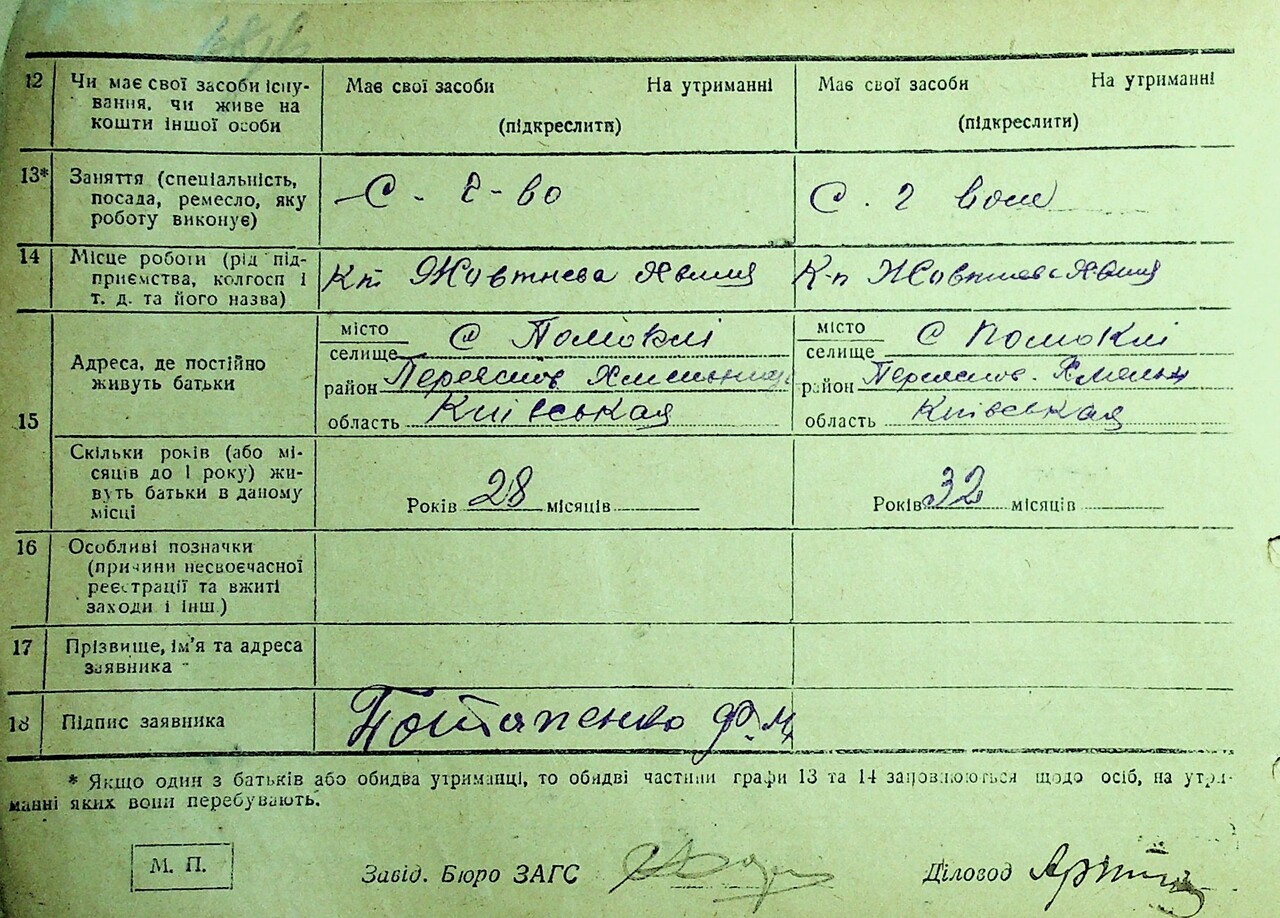 12 Чи має свої засоби існу- Має свої засоби На утриманні Має свої засоби На утриманні
вання, чи живе на
кошти іншої особи (підкреслити) (підкреслити)
13* Заняття (спеціальність,
посада, ремесло, яку С - г - во С. г
роботу виконує)
14 Місце роботи (рід під-
приємства, колгосп і Кт Жовтнева Хвиля К-п Жовтнева Хвиля
т. д. та його назва)
15 місто С Помоклі місто С Помоклі
селище селище
Адреса, де постійно
живуть батьки район Переяслов район Переяслов. Хмельн
область Київськая область Київськая
Скільки років (або мі-
сяців до 1 року) жи-
вуть батьки в даному Років 28 місяців Років 32 місяців
місці
16 Особливі позначки
(причини несвоєчасної
реєстрації та вжиті
заходи і інш.)
17 Прізвище, ім'я та адреса
заявника
18 Підпис заявника Потапенко Ф. М
* Якщо один з батьків або обидва утриманці, то обидві частини графи 13 та 14 заповнюються щодо осіб, на утри-
манні яких вони перебувають.
М. П. Завід. Бюро ЗАГС Діловод